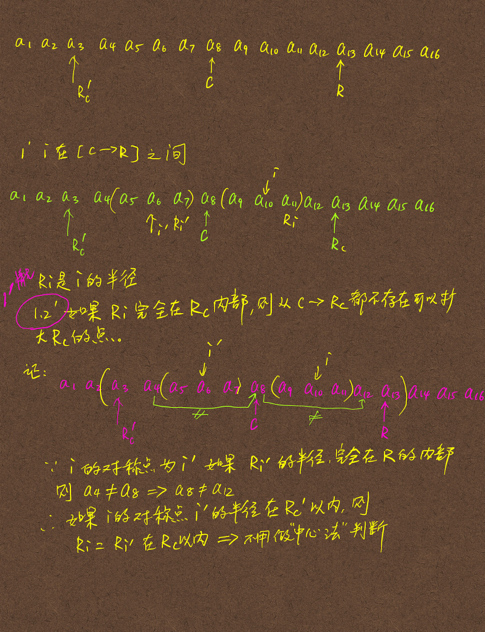 a1 a2 a3 a4 a5 a6 a7 a8 a9 a10 a11 a12 a13 a14 a15 a16
Rc' C R
1' i在[C→R]之间
i
a1 a2 a3 a4(a5 a6 a7)a8(a9 a10 a11)a12 a13 a14 a15 a16
Rc' i', Ri' C Ri Rc
Ri是i的半径
1.2' 如果Ri完全在Rc内部,则从C→Rc都不存在可以扩
大Rc的点。
证:
i' i
a1 a2(a3 a4(a5 a6 a7)a8(a9 a10 a11)a12 a13)a14 a15 a16
≠ ≠
Rc' C R
∵ i的对称点为i' 如果Ri'的半径完全在R的内部
则 a4≠a8 => a8≠a12
∴ 如果i的对称点i'的半径在Rc'以内,则
Ri=Ri' 在Rc以内 => 不用做"中心法"判断